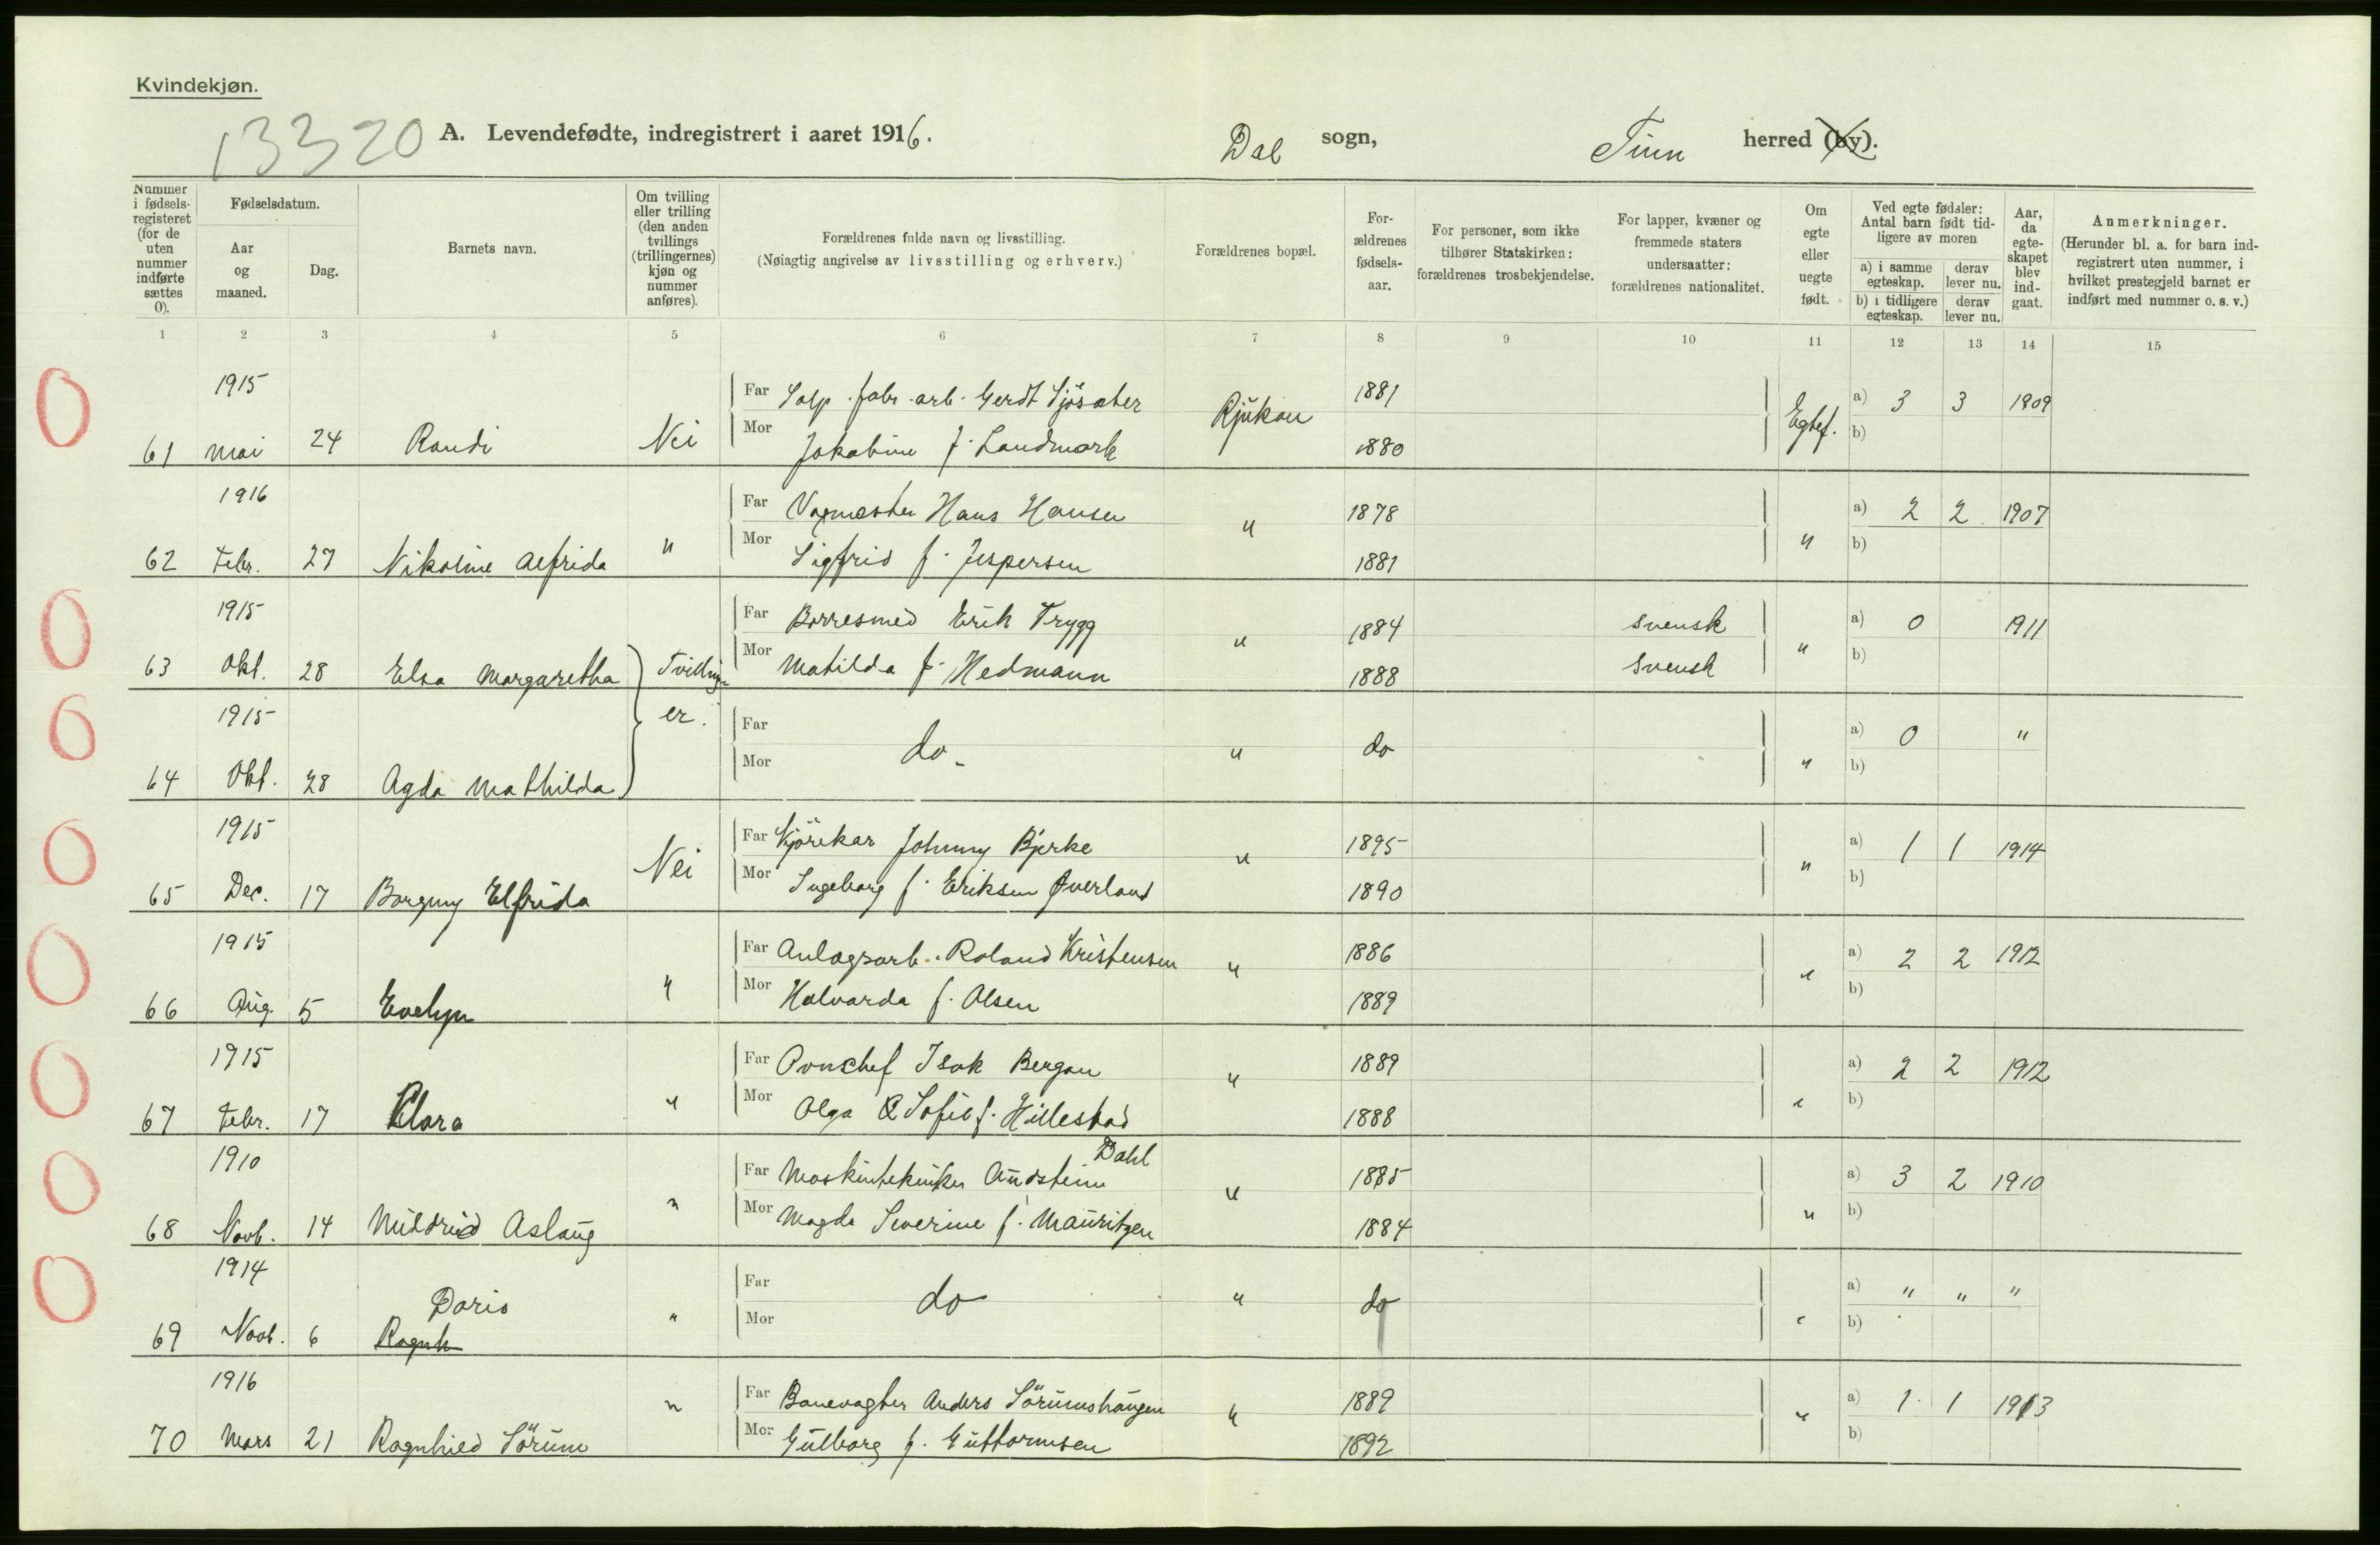 Kvindekjøn.
13320 A. Levendefødte, indregistrert i aaret 1916. Dal sogn, Tinn herred (by).
Nummer i fødsels-registeret (for de uten nummer indførte sættes 0).
Fødselsdatum.
Aar og maaned.
Dag.
Barnets navn.
Om tvilling eller trilling (den anden tvillings (trillingernes) kjøn og nummer anføres).
Forældrenes fulde navn og livsstilling.
(Nøiagtig angivelse av livsstilling og erhverv.)
Forældrenes bopæl.
For-ældrenes fødsels-aar.
For personer, som ikke tilhører Statskirken: forældrenes trosbekjendelse.
For lapper, kvæner og fremmede staters undersaatter: forældrenes nationalitet.
Om egte eller uegte født.
Ved egte fødsler: Antal barn født tid-ligere av moren
a) i samme egteskap.
derav lever nu.
b) i tidligere egteskap.
derav lever nu.
Aar, da egte-skapet blev ind-gaat.
Anmerkninger.
(Herunder bl. a. for barn ind-registrert uten nummer, i hvilket prestegjeld barnet er indført med nummer o. s. v.)
1 2 3 4 5 6 7 8 9 10 11 12 13 14 15
0 1915 Far Salp. fabr. arb. Gerdt Sjösæter Rjukan 1881 Egtef. a) 3 3 1909
61 Mai 24 Randi Nei Mor Jakobine f. Landmark 1880 b)
1916 Far Vagmester Hans Hansen " 1878 " a) 2 2 1907
62 Febr. 27 Nikoline Alfrida " Mor Sigfrid f. Jespersen 1881 b)
0 1915 Far Borresmed Erik Trygg " 1884 svensk " a) 0 1911
63 Okt. 28 Elsa Margaretha Tvillinger. Mor Matilda f. Hedmann 1888 svensk b)
0 1915 Far do " do " a) 0 "
64 Okt. 28 Agda Mathilda Mor b)
0 1915 Far Kjörekar Johnny Bjerke " 1895 " a) 1 1 1914
65 Dec. 17 Borgny Elfrida Nei Mor Ingeborg f. Eriksen Øverland 1890 b)
0 1915 Far Anlagsarb. Roland Kristensen " 1886 " a) 2 2 1912
66 Aug. 5 Evelyn " Mor Halvarda f. Olsen 1889 b)
0 1915 Far Ovnschef Isak Bergan " 1889 " a) 2 2 1912
67 Febr. 17 Klara " Mor Olga Sofie f. Hillestad 1888 b)
0 1910 Far Maskintekniker Audstein Dahl " 1885 " a) 3 2 1910
68 Novb. 14 Mildrid Aslaug " Mor Magda Severine f. Mauritzen 1884 b)
0 1914 Doris Far do " do " a) " " "
69 Novb. 6 Ragnh " Mor b)
1916 Far Banevagter Anders Sörumshaugen " 1889 " a) 1 1 1913
70 Mars 21 Ragnhild Sörum " Mor Gulborg f. Guttormsen 1892 b)